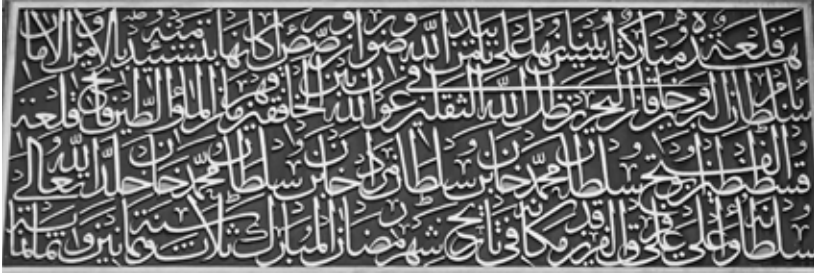 هذه قلعة مباركة اسس بنيانها على تاييد من الله ورضوان ورصص اركانها بتشييد الامن والامان
بامر سلطان البرين وخاقان البحرين ظل الله في الثقلين عون الله بين الخافقين قهرمان الماء والطين فاتح قلعة
قسطنطينية ابو الفتح سلطان محمد خان بن سلطان مراد خان بن سلطان محمد خان خلد الله تعالى
سلطانه واعلى على فرق الفرقدين مكانه في تاريخ شهر رمضان المبارك سنة ثلاث وثمانين وثمانمائة